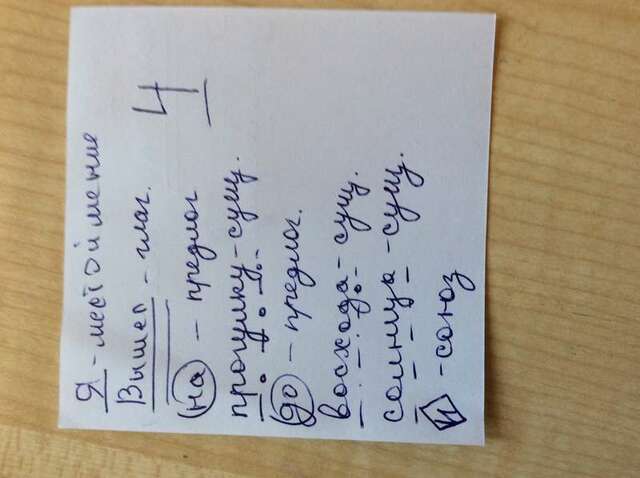 Я - местоимение
Вышел - глаг.
4
на - предлог
прогулку - сущ.
до - предлог.
восхода - сущ.
солнца - сущ.
И - союз